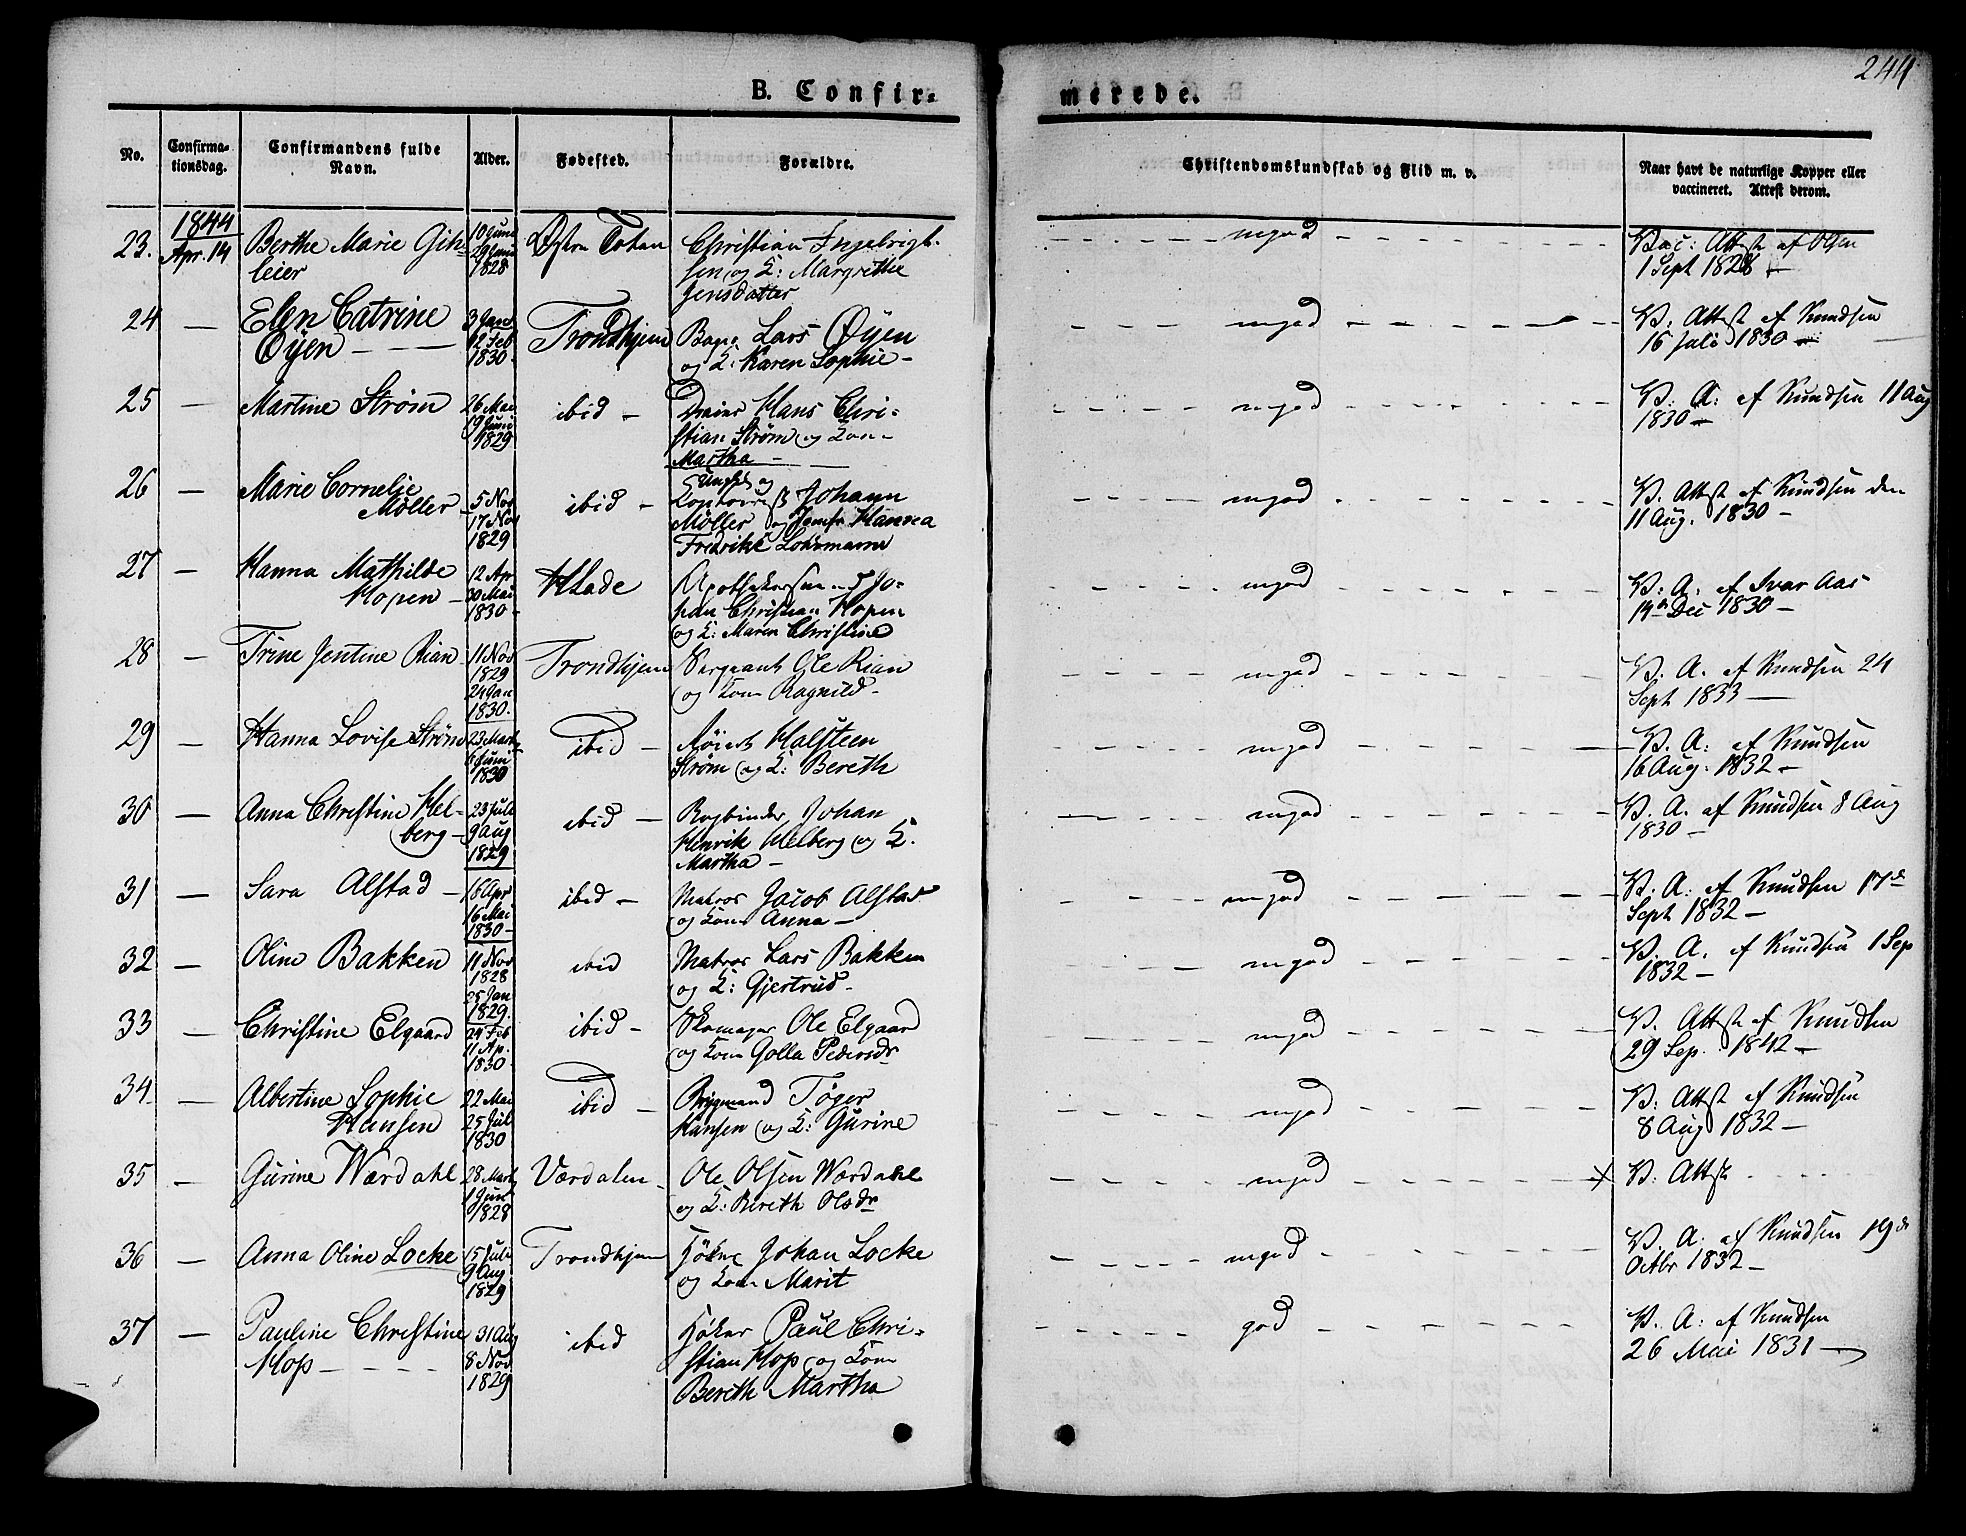 244
B. Confir-
merede.
No.
Confirma-
tionsdag.
Confirmandens fulde
Navn.
Alder.
Fødested.
Forældre.
Christendomskundskab og Flid m. v.
Naar havt de naturlige Kopper eller
vaccineret. Attest derom.
1844
23. Apr. 14 Berthe Marie Gih-
leier
10 Juni
29 Juni
1828
Østre Tothen
Christian Ingebrigt-
sen og K: Margrethe
Jensdatter
mgod
Vac: Attest af Olsen
1 Sept 1828 —
24 — Elen Catrine
Øyen — — —
3 Jan
12 Feb
1830
Trondhjem
Lars Øyen
og K: Karen Sophie —
mgod
V. Attest af Knudsen
16 Juli 1830 —
25 — Martine Strøm
26 Mai
19 Juni
1829
ibid —
Hans Chri-
stian Strøm og Kon-
Martha —
mgod
V. A: af Knudsen 11 Aug
1830 —
26 — Marie Cornelie
Møller —
5 Nov
17 Nov
1829
ibid —
Ungk og
Johann
Møller og Jomfr Hanna
Fredrikke Lohrmann
mgod
V. Attest af Knudsen den
11 Aug. 1830 —
27 — Hanna Mathilde
Hopen —
12 Apr
30 Mai
1830
Hlade
Jo-
han Christian Hopen
og K: Maren Christine
mgod
V: A. af Ivar Aas
14de Dec 1830 —
28 — Trine Jentine Rian
11 Nov
1829
24 Jan
1830.
Trondhjem
Sergeant Ole Rian
og Kone Ragnild —
mgod
V. A. af Knudsen 24
Sept 1833 —
29 — Hanna Lovise Strøm
23 Marts
6 Juni
1830
ibid —
Halsteen
Strøm og K: Bereth
mgod
V. A: af Knudsen
16 Aug. 1832 —
30 — Anna Christine Hel-
berg —
23 Juli
9 Aug
1829
ibid —
Bogbinder Johan
Henrik Helberg og K.
Martha —
mgod
V. A. af Knudsen 8 Aug
1830 —
31 — Sara Alstad —
16 Apr
16 Mai
1830 —
ibid —
Matros Jacob Alstad
og Kone Anna —
mgod
V. A: af Knudsen 17de
Sept 1832 —
32 — Oline Bakken
11 Nov
1828
25 Jan
1829.
ibid
Matros Lars Bakken
og K: Gjertrud —
mgod
V. A. af Knudsen 1 Sep
1832 —
33 — Christine Elgaard
24 Feb
11 Ap.
1830
ibid —
Skomager Ole Elgaard
og Kone Golla Pedersdr
mgod
V. Attest af Knudsen
29 Sep. 1842 —
34 — Albertine Sophie
Hansen
22 Mai
25 Jul
1830
ibid —
Brygmand Tøger
Hansen og K: Gurine
mgod
V: Attest af Knudsen
8 Aug 1832 —
35 — Gurine Wærdahl
28 Mart
1 Jun
1828
Værdalen —
Ole Olsen Wærdahl
og K: Bereth Olsdr
mgod
X V: Attest
36 — Anna Oline Locke
15 Juli
9 Aug
1829
Trondhjem
Høker Johan Locke
og Kone Marit
mgod
V. A: af Knudsen 19de
Octbr 1832 —
37 — Pauline Christine
Hop — — — —
31 Aug
8 Nov
1829
ibid
Høker Paul Chri-
stian Hop og Kone
Bereth Martha
god
V. A: af Knudsen
26 Mai 1831 —